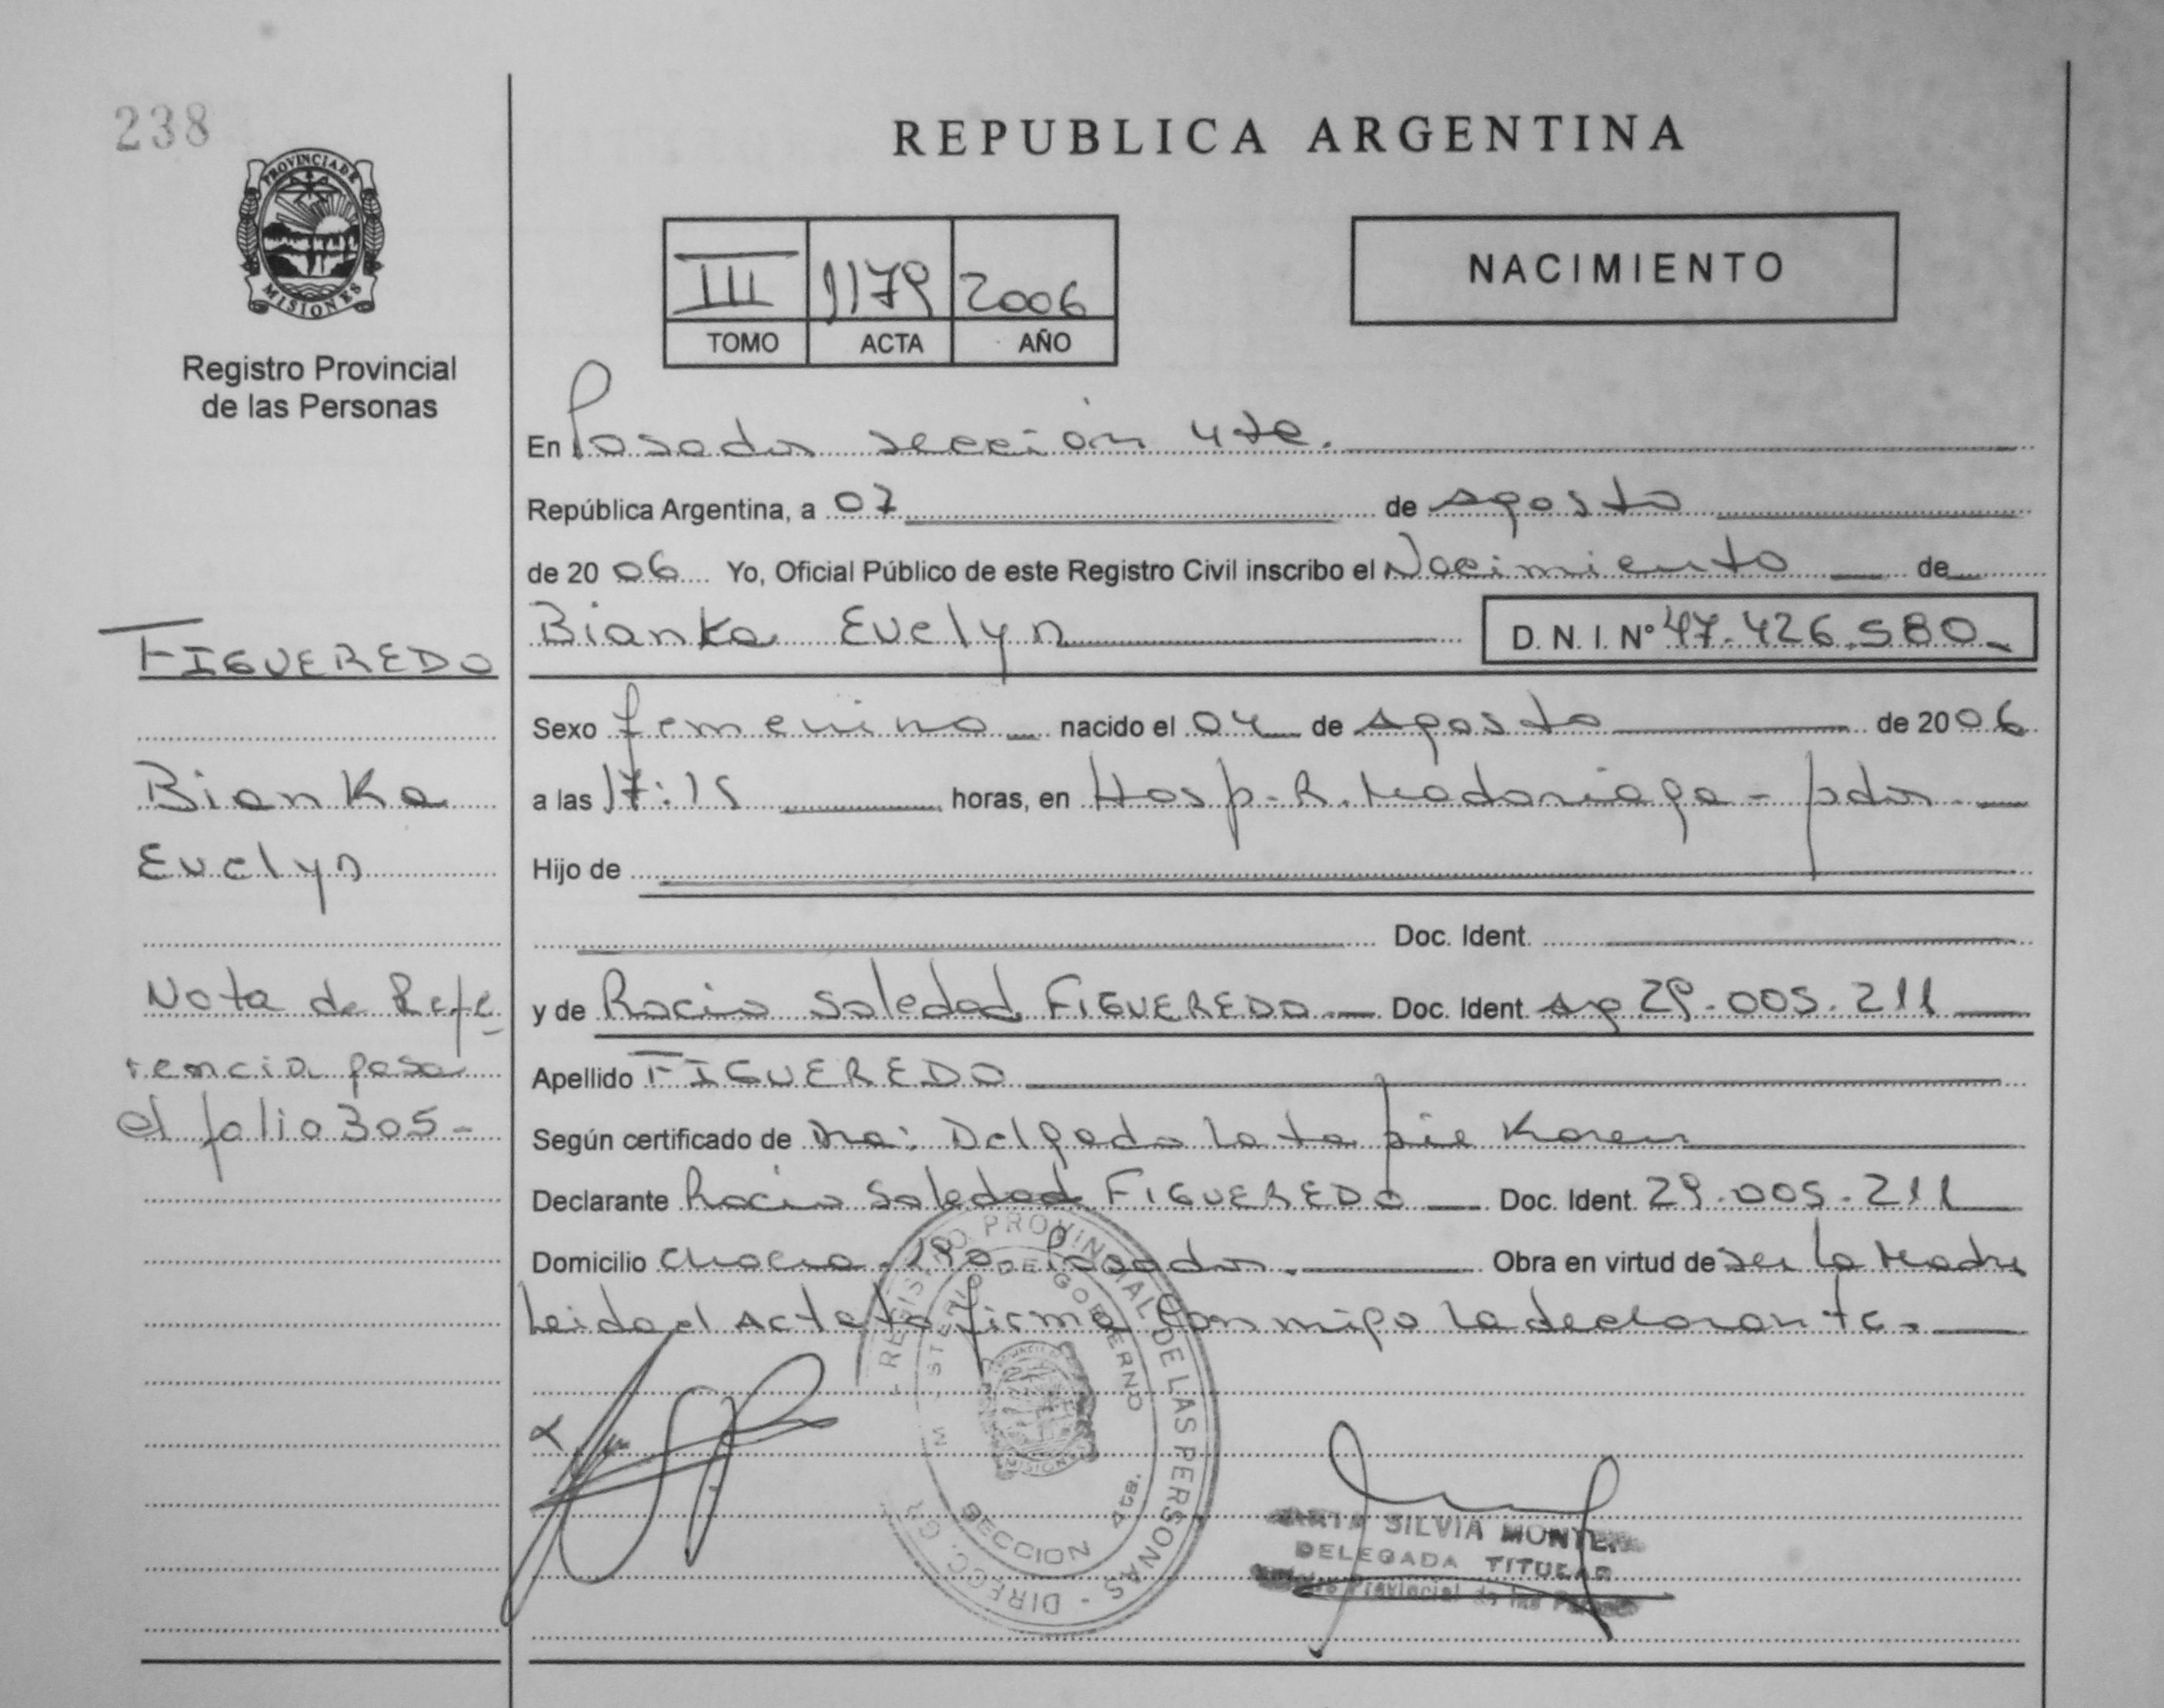 238
PROVINCIA DE
MISIONES
Registro Provincial
de las Personas
REPUBLICA ARGENTINA
III 1179 2006
TOMO ACTA AÑO
NACIMIENTO
En Posadas sección 4ta.
República Argentina, a 07 de agosto
de 2006 Yo, Oficial Público de este Registro Civil inscribo el Nacimiento de
Bianka Evelyn D. N. I. Nº 47.426.580
Sexo femenino nacido el 04 de agosto de 2006
a las 17:15 horas, en Hosp. R. Madariaga - pdas.
Hijo de
Doc. Ident.
y de Rocio Soledad FIGUEREDO Doc. Ident. 29.005.211
Apellido FIGUEREDO
Según certificado de Dra: Delgado Latapie Karen
Declarante Rocio Soledad FIGUEREDO Doc. Ident. 29.005.211
Domicilio Posadas. Obra en virtud de ser la Madre
Leida el Acta la firma conmigo la declarante.
FIGUEREDO
Bianka
Evelyn
Nota de Refe
rencia pasa
al folio 305-
REGISTRO PROVINCIAL DE LAS PERSONAS - DIRECC. GR
MINISTERIO DE GOBERNO
MISIONES
SECCION 4ta.
SILVIA
DELEGADA TITULAR
Provincial de las